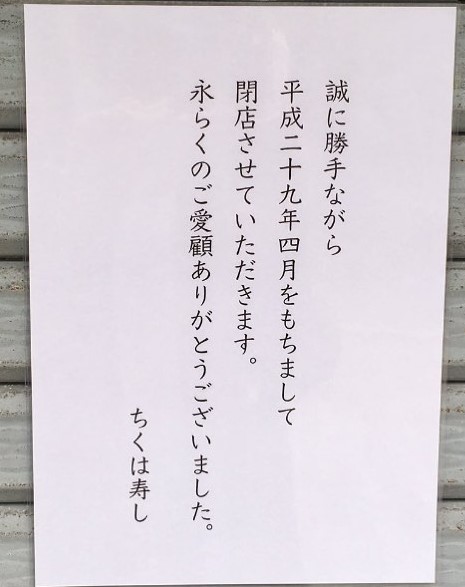 誠に勝手ながら
平成二十九年四月をもちまして
閉店させていただきます。
永らくのご愛顧ありがとうございました。
ちくは寿し